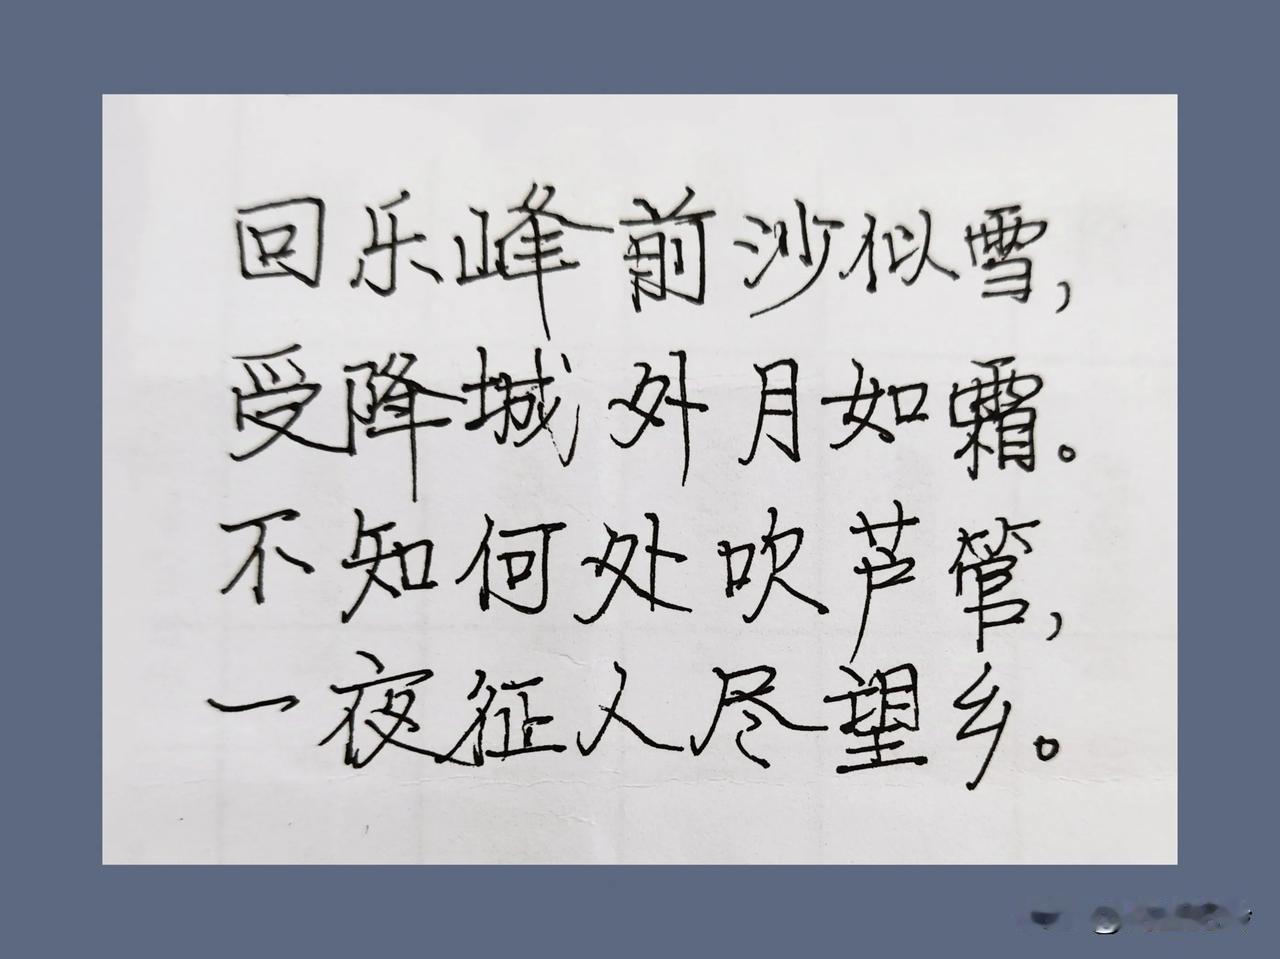 回乐峰前沙似雪，
受降城外月如霜。
不知何处吹芦管，
一夜征人尽望乡。